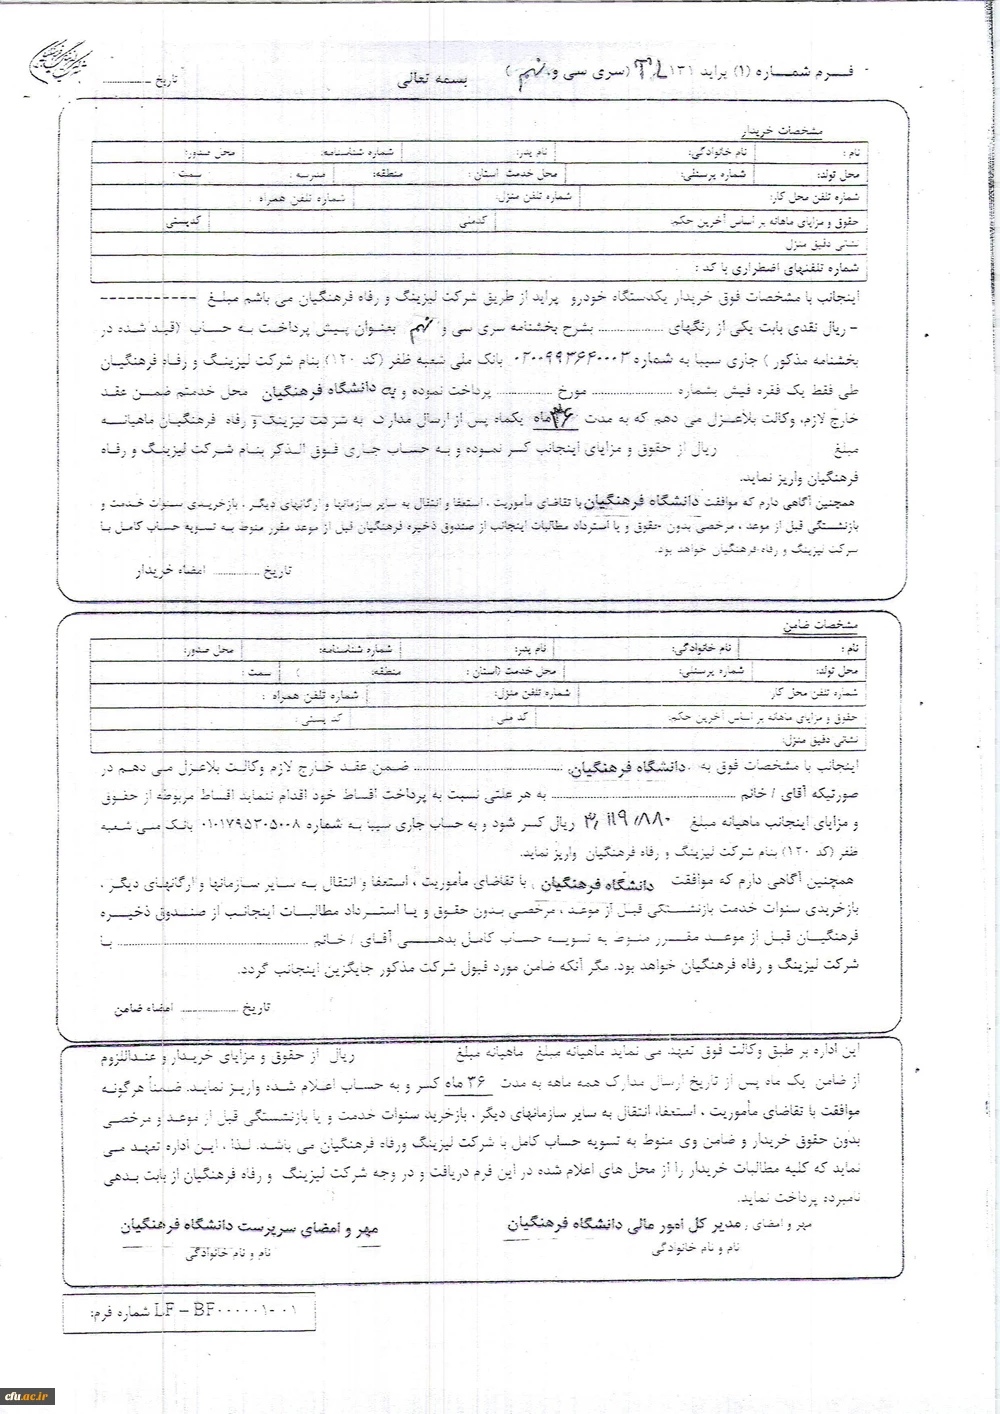 فرم شماره (۱) پراید ۱۳۱ TL (سری سی و نهم)
بسمه تعالی
تاریخ ................
مشخصات خریدار
نام : نام خانوادگی: نام پدر: شماره شناسنامه: محل صدور:
محل تولد: شماره پرسنلی: محل خدمت استان : منطقه: مدرسه : سمت :
شماره تلفن محل کار: شماره تلفن منزل: شماره تلفن همراه :
حقوق و مزایای ماهانه بر اساس آخرین حکم: کدملی کدپستی
نشانی دقیق منزل
شماره تلفنهای اضطراری با کد :
اینجانب با مشخصات فوق خریدار یکدستگاه خودرو پراید از طریق شرکت لیزینگ و رفاه فرهنگیان می باشم مبلغ -----------
- ریال نقدی بابت یکی از رنگهای ................ بشرح بخشنامه سری سی و نهم بعنوان پیش پرداخت به حساب (قید شده در
بخشنامه مذکور ) جاری سیبا به شماره ۰۲۰۰۹۹۳۶۴۰۰۰۳ بانک ملی شعبه ظفر (کد ۱۲۰) بنام شرکت لیزینگ و رفاه فرهنگیان
طی فقط یک فقره فیش بشماره .................... مورخ .............. پرداخت نموده و به دانشگاه فرهنگیان محل خدمتم ضمن عقد
خارج لازم، وکالت بلاعزل می دهم که به مدت ۳۶ ماه یکماه پس از ارسال مدارک به شرکت لیزینگ و رفاه فرهنگیان ماهیانه
مبلغ ریال از حقوق و مزایای اینجانب کسر نموده و به حساب جاری فوق الذکر بنام شرکت لیزینگ و رفاه
فرهنگیان واریز نماید.
همچنین آگاهی دارم که موافقت دانشگاه فرهنگیان با تقاضای مأموریت ، استعفا و انتقال به سایر سازمانها و ارگانهای دیگر ، بازخریدی سنوات خدمت و
بازنشستگی قبل از موعد ، مرخصی بدون حقوق و یا استرداد مطالبات اینجانب از صندوق ذخیره فرهنگیان قبل از موعد مقرر منوط به تسویه حساب کامل با
شرکت لیزینگ و رفاه فرهنگیان خواهد بود.
تاریخ ............... امضاء خریدار
مشخصات ضامن
نام : نام خانوادگی: نام پدر: شماره شناسنامه: محل صدور:
محل تولد: شماره پرسنلی: محل خدمت (استان : منطقه: ) سمت :
شماره تلفن محل کار شماره تلفن منزل: شماره تلفن همراه :
حقوق و مزایای ماهانه بر اساس آخرین حکم: کد ملی : کد پستی :
نشانی دقیق منزل:
اینجانب با مشخصات فوق به دانشگاه فرهنگیان ................................ ضمن عقد خارج لازم وکالت بلاعزل می دهم در
صورتیکه آقای / خانم ........................................ به هر علتی نسبت به پرداخت اقساط خود اقدام ننماید اقساط مربوطه از حقوق
و مزایای اینجانب ماهیانه مبلغ ۳/۱۱۹/۸۸۰ ریال کسر شود و به حساب جاری سیبا به شماره ۰۱۰۱۷۹۵۳۰۵۰۰۸ بانک ملی شعبه
ظفر (کد ۱۲۰) بنام شرکت لیزینگ و رفاه فرهنگیان واریز نماید.
همچنین آگاهی دارم که موافقت دانشگاه فرهنگیان با تقاضای مأموریت ، استعفا و انتقال به سایر سازمانها و ارگانهای دیگر ،
بازخریدی سنوات خدمت بازنشستگی قبل از موعد ، مرخصی بدون حقوق و یا استرداد مطالبات اینجانب از صندوق ذخیره
فرهنگیان قبل از موعد مقرر منوط به تسویه حساب کامل بدهی آقای / خانم ........................................ با
شرکت لیزینگ و رفاه فرهنگیان خواهد بود. مگر آنکه ضامن مورد قبول شرکت مذکور جایگزین اینجانب گردد.
تاریخ ............... امضاء ضامن
این اداره بر طبق وکالت فوق تعهد می نماید ماهیانه مبلغ ماهیانه مبلغ ریال از حقوق و مزایای خریدار و عنداللزوم
از ضامن یک ماه پس از تاریخ ارسال مدارک همه ماهه به مدت ۳۶ ماه کسر و به حساب اعلام شده واریز نماید. ضمناً هرگونه
موافقت با تقاضای مأموریت ، استعفا، انتقال به سایر سازمانهای دیگر ، بازخرید سنوات خدمت و یا بازنشستگی قبل از موعد و مرخصی
بدون حقوق خریدار و ضامن وی منوط به تسویه حساب کامل با شرکت لیزینگ ورفاه فرهنگیان می باشد. لذا ، این اداره تعهد می
نماید که کلیه مطالبات خریدار را از محل های اعلام شده در این فرم دریافت و در وجه شرکت لیزینگ و رفاه فرهنگیان از بابت بدهی
نامبرده پرداخت نماید.
مهر و امضای ، مدیر کل امور مالی دانشگاه فرهنگیان
نام و نام خانوادگی
مهر و امضای سرپرست دانشگاه فرهنگیان
نام و نام خانوادگی
شماره فرم: LF – BF۰۰۰۰۰۱-۰۱
cfu.ac.ir